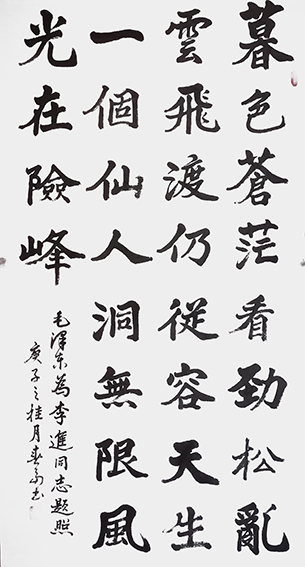 暮色蒼茫看勁松亂
雲飛渡仍從容天生
一個仙人洞無限風
光在險峰
毛澤东為李進同志題照
庚子之桂月春雨书